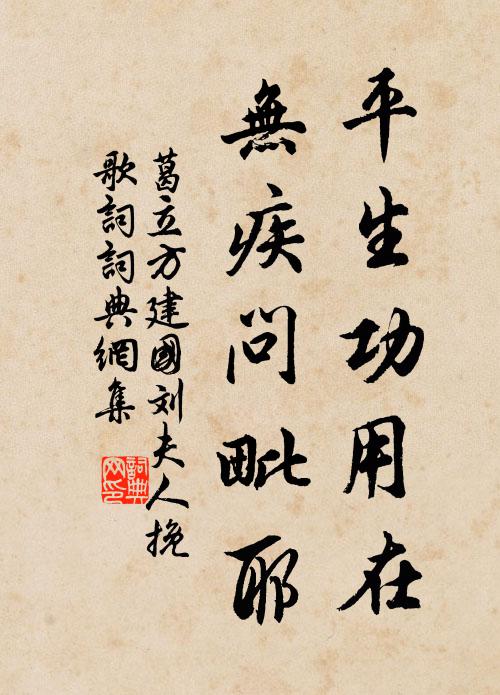 平生功用在
無疾問毗耶
葛立方建國刘夫人挽
歌詞詞典網集
詞典
网印